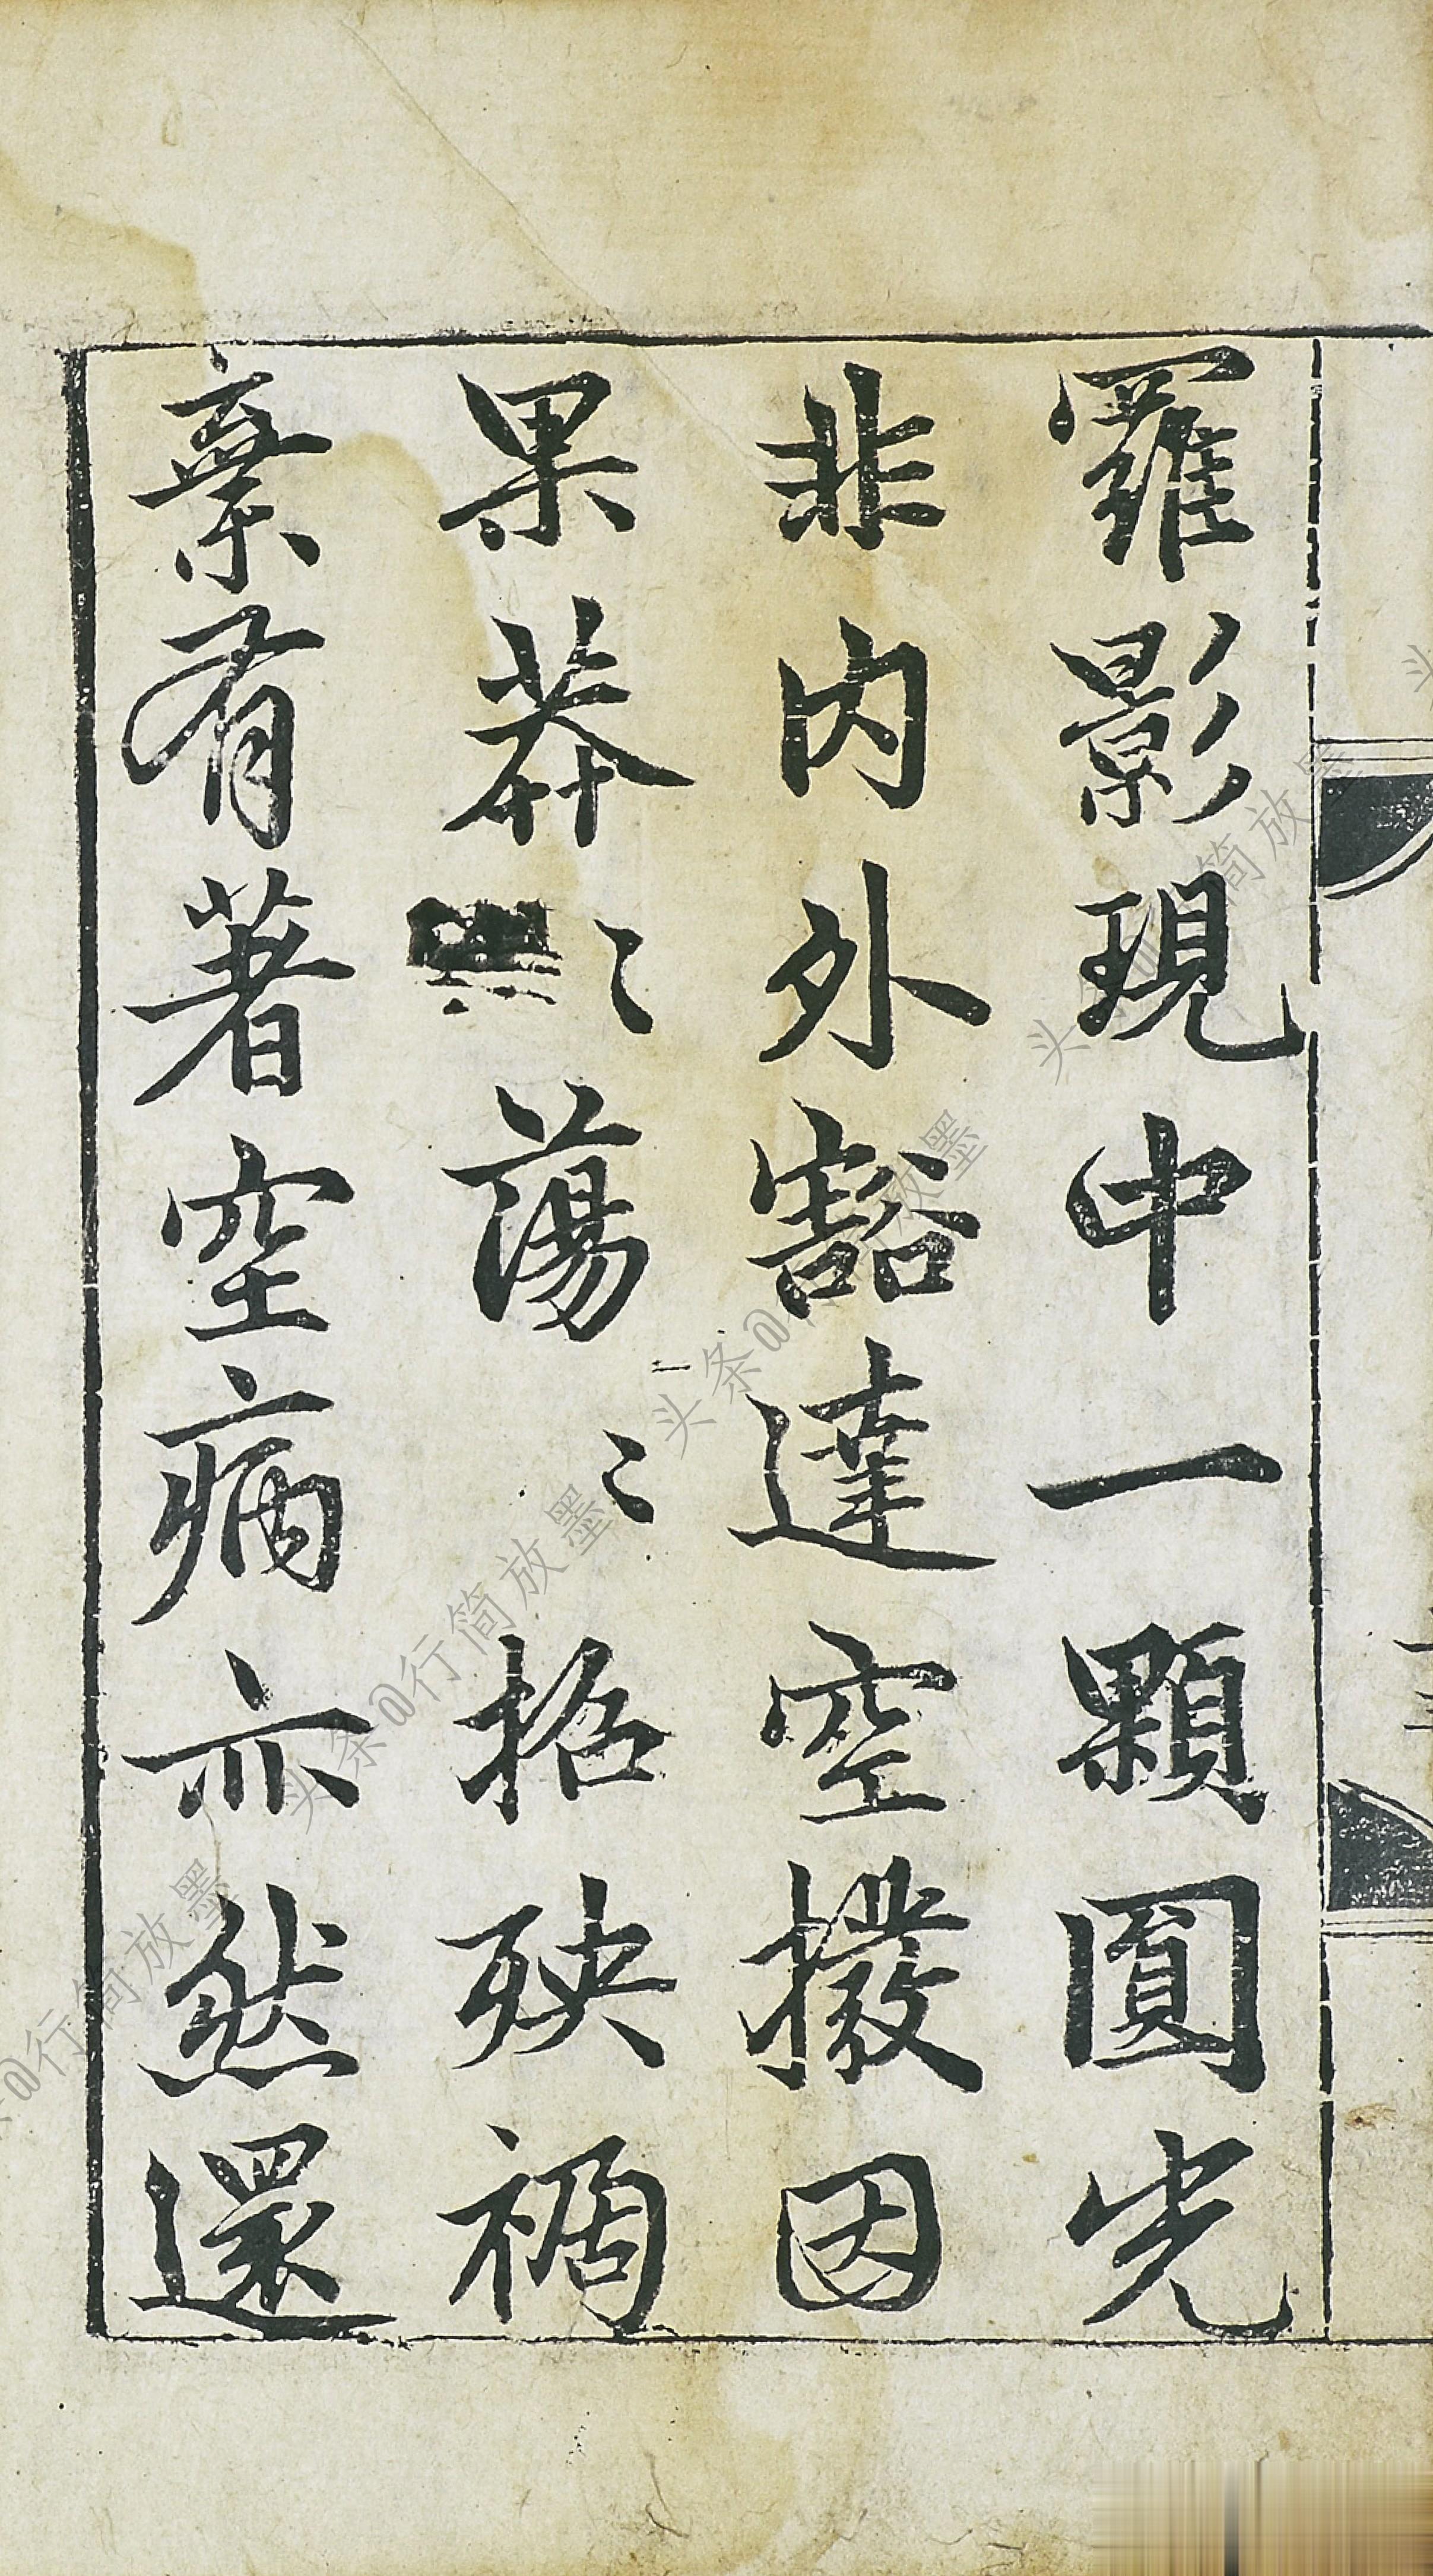 羅影現中一顆圓光
非內外豁達空撥因
果莽〻蕩〻招殃禍
棄有著空病亦然還
头条@行简放墨
头条@行简放墨
头条@行简放墨
头条@行简放墨